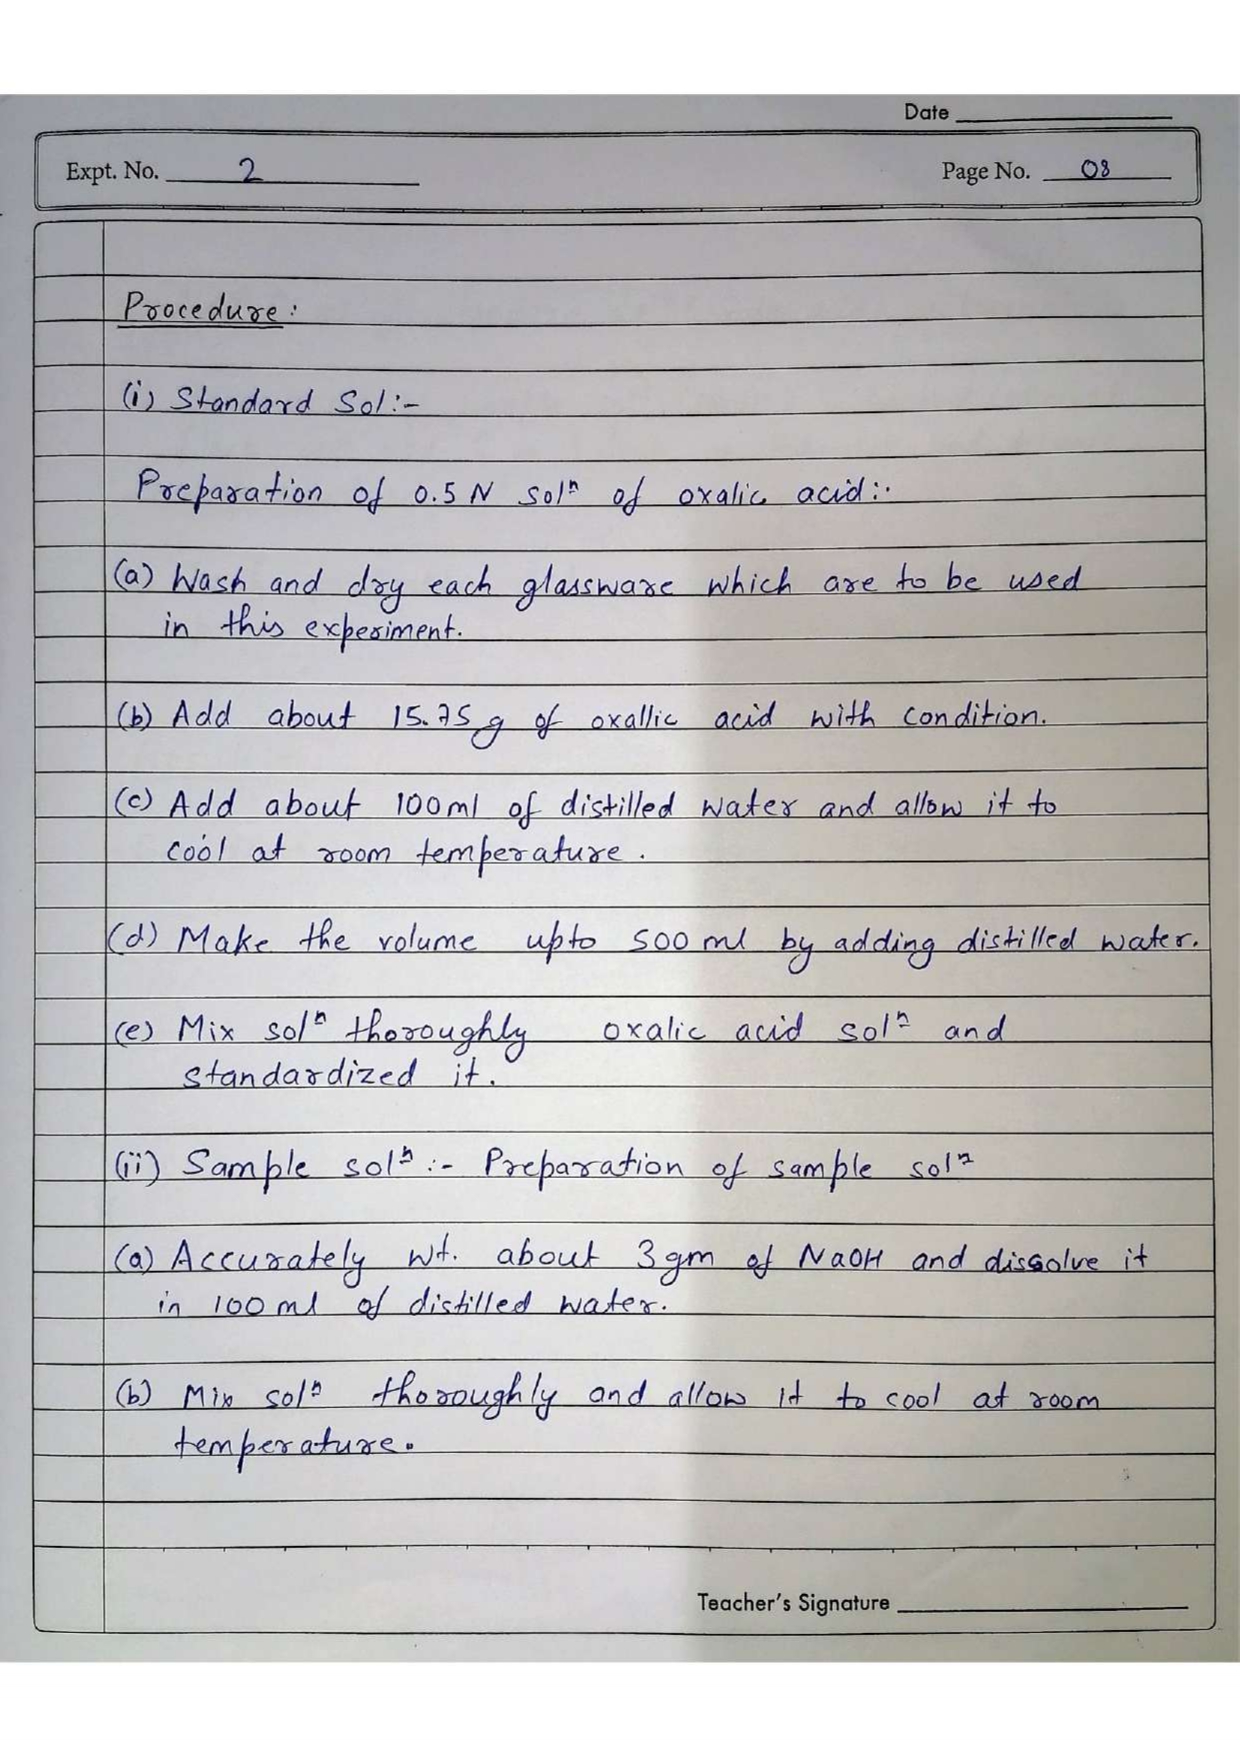 Date
Expt. No. 2
Page No. 08
Procedure :
(i) Standard Sol:-
Preparation of 0.5 N solⁿ of oxalic acid:-
(a) Wash and dry each glassware which are to be used
in this experiment.
(b) Add about 15.75 g of oxallic acid with condition.
(c) Add about 100 ml of distilled water and allow it to
cool at room temperature.
(d) Make the volume upto 500 ml by adding distilled water.
(e) Mix solⁿ thoroughly oxalic acid solⁿ and
standardized it.
(ii) Sample solⁿ :- Preparation of sample solⁿ
(a) Accurately wt. about 3 gm of NaOH and dissolve it
in 100 ml of distilled water.
(b) Mix solⁿ thoroughly and allow it to cool at room
temperature.
Teacher's Signature